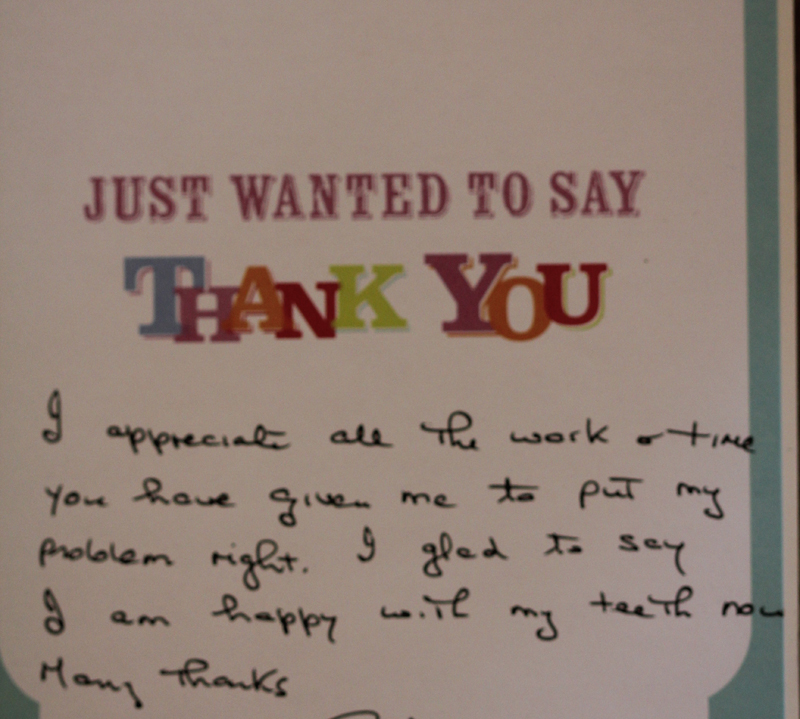 JUST WANTED TO SAY
THANK YOU
I appreciate all the work & time
you have given me to put my
problem right. I glad to say
I am happy with my teeth now
Many Thanks